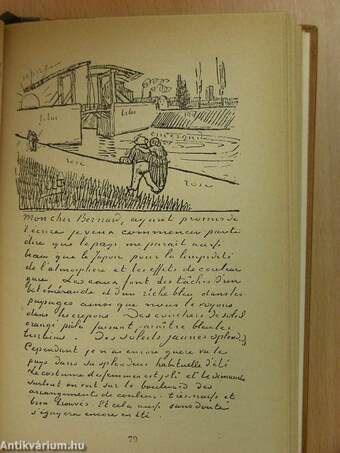 lilas
lilas
émeraude
rose
rose
Mon cher Bernard, ayant promis de
t'écrire je veux commencer par te
dire que le pays me parait aussi
beau que le Japon pour la limpidité
de l'atmosphère et les effets de couleur
gaie. Les eaux font des tâches d'un
bel émeraude et d'un riche bleu dans les
paysages ainsi que nous le voyons
dans les crepons. Des couchers de soleil
orangé pâle faisant paraitre bleus les
terrains. Des soleils jaunes splendides
Cependant je n'ai encore guère vu le
pays dans sa splendeur habituelle d'été
Le costume des femmes est joli et le dimanche
surtout on voit sur le boulevard des
arrangements de couleur très naifs et
bien trouvés. Et cela aussi sans doute
s'égayera encore en été.
79
antikvárium.hu